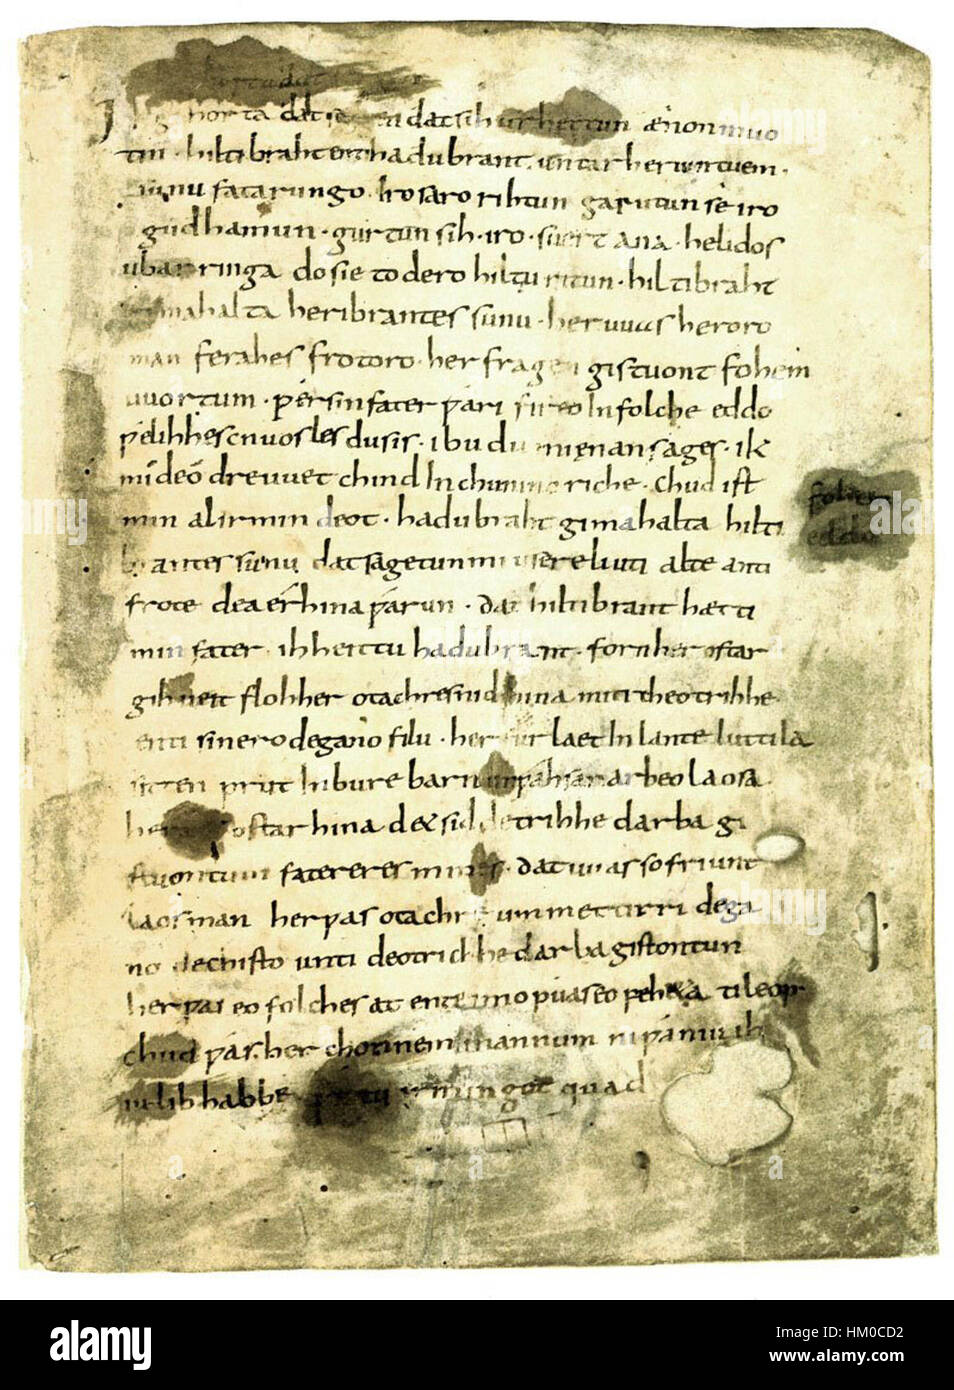 Ik gihorta dat seggen dat sih urhettun ænon muo
tin · hiltibraht enti hadubrant · untar heriun tuem ·
sunu fatarungo · iro saro rihtun garutun sê iro
gudhamun · gurtun sih · iro · suert ana · helidos
ubar ringa do sie to dero hiltiu ritun · hiltibraht
gimahalta heribrantes sunu · her uuas heroro
man ferahes frotoro · her fragen gistuont fohem
uuortum · wer sin fater wari fireo In folche eddo
welihhes cnuosles du sis · ibu du mi enan sages · ik
mi de odre uuet chind In chunincriche · chud ist
min al irmin deot · hadubraht gimahalta hilti
brantes sunu dat sagetun mi usere liuti alte anti
frote dea erhina warun · dat hiltibrant hætti
min fater · ih heittu hadubrant · forn her ostar
gihueit floh her otachres nid hina miti theotrihhe ·
enti sinero degano filu · her fur laet In lante luttila
sitten prut In bure barn unwahsan arbeo laosa
her ostar hina det sid detrihhe darba gi
stuontum fateres mines · dat uuas so friunt
laos man her was otachre ummet tirri dega
no dechisto unti deotrichhe darba gistontun
her was eo folches at ente imo puas eo peheta ti leop ·
chud was her chonnem mannum ni waniu ih
iu lib habbe wettu irmingot quad
alamy
Image ID: HM0CD2
www.alamy.com